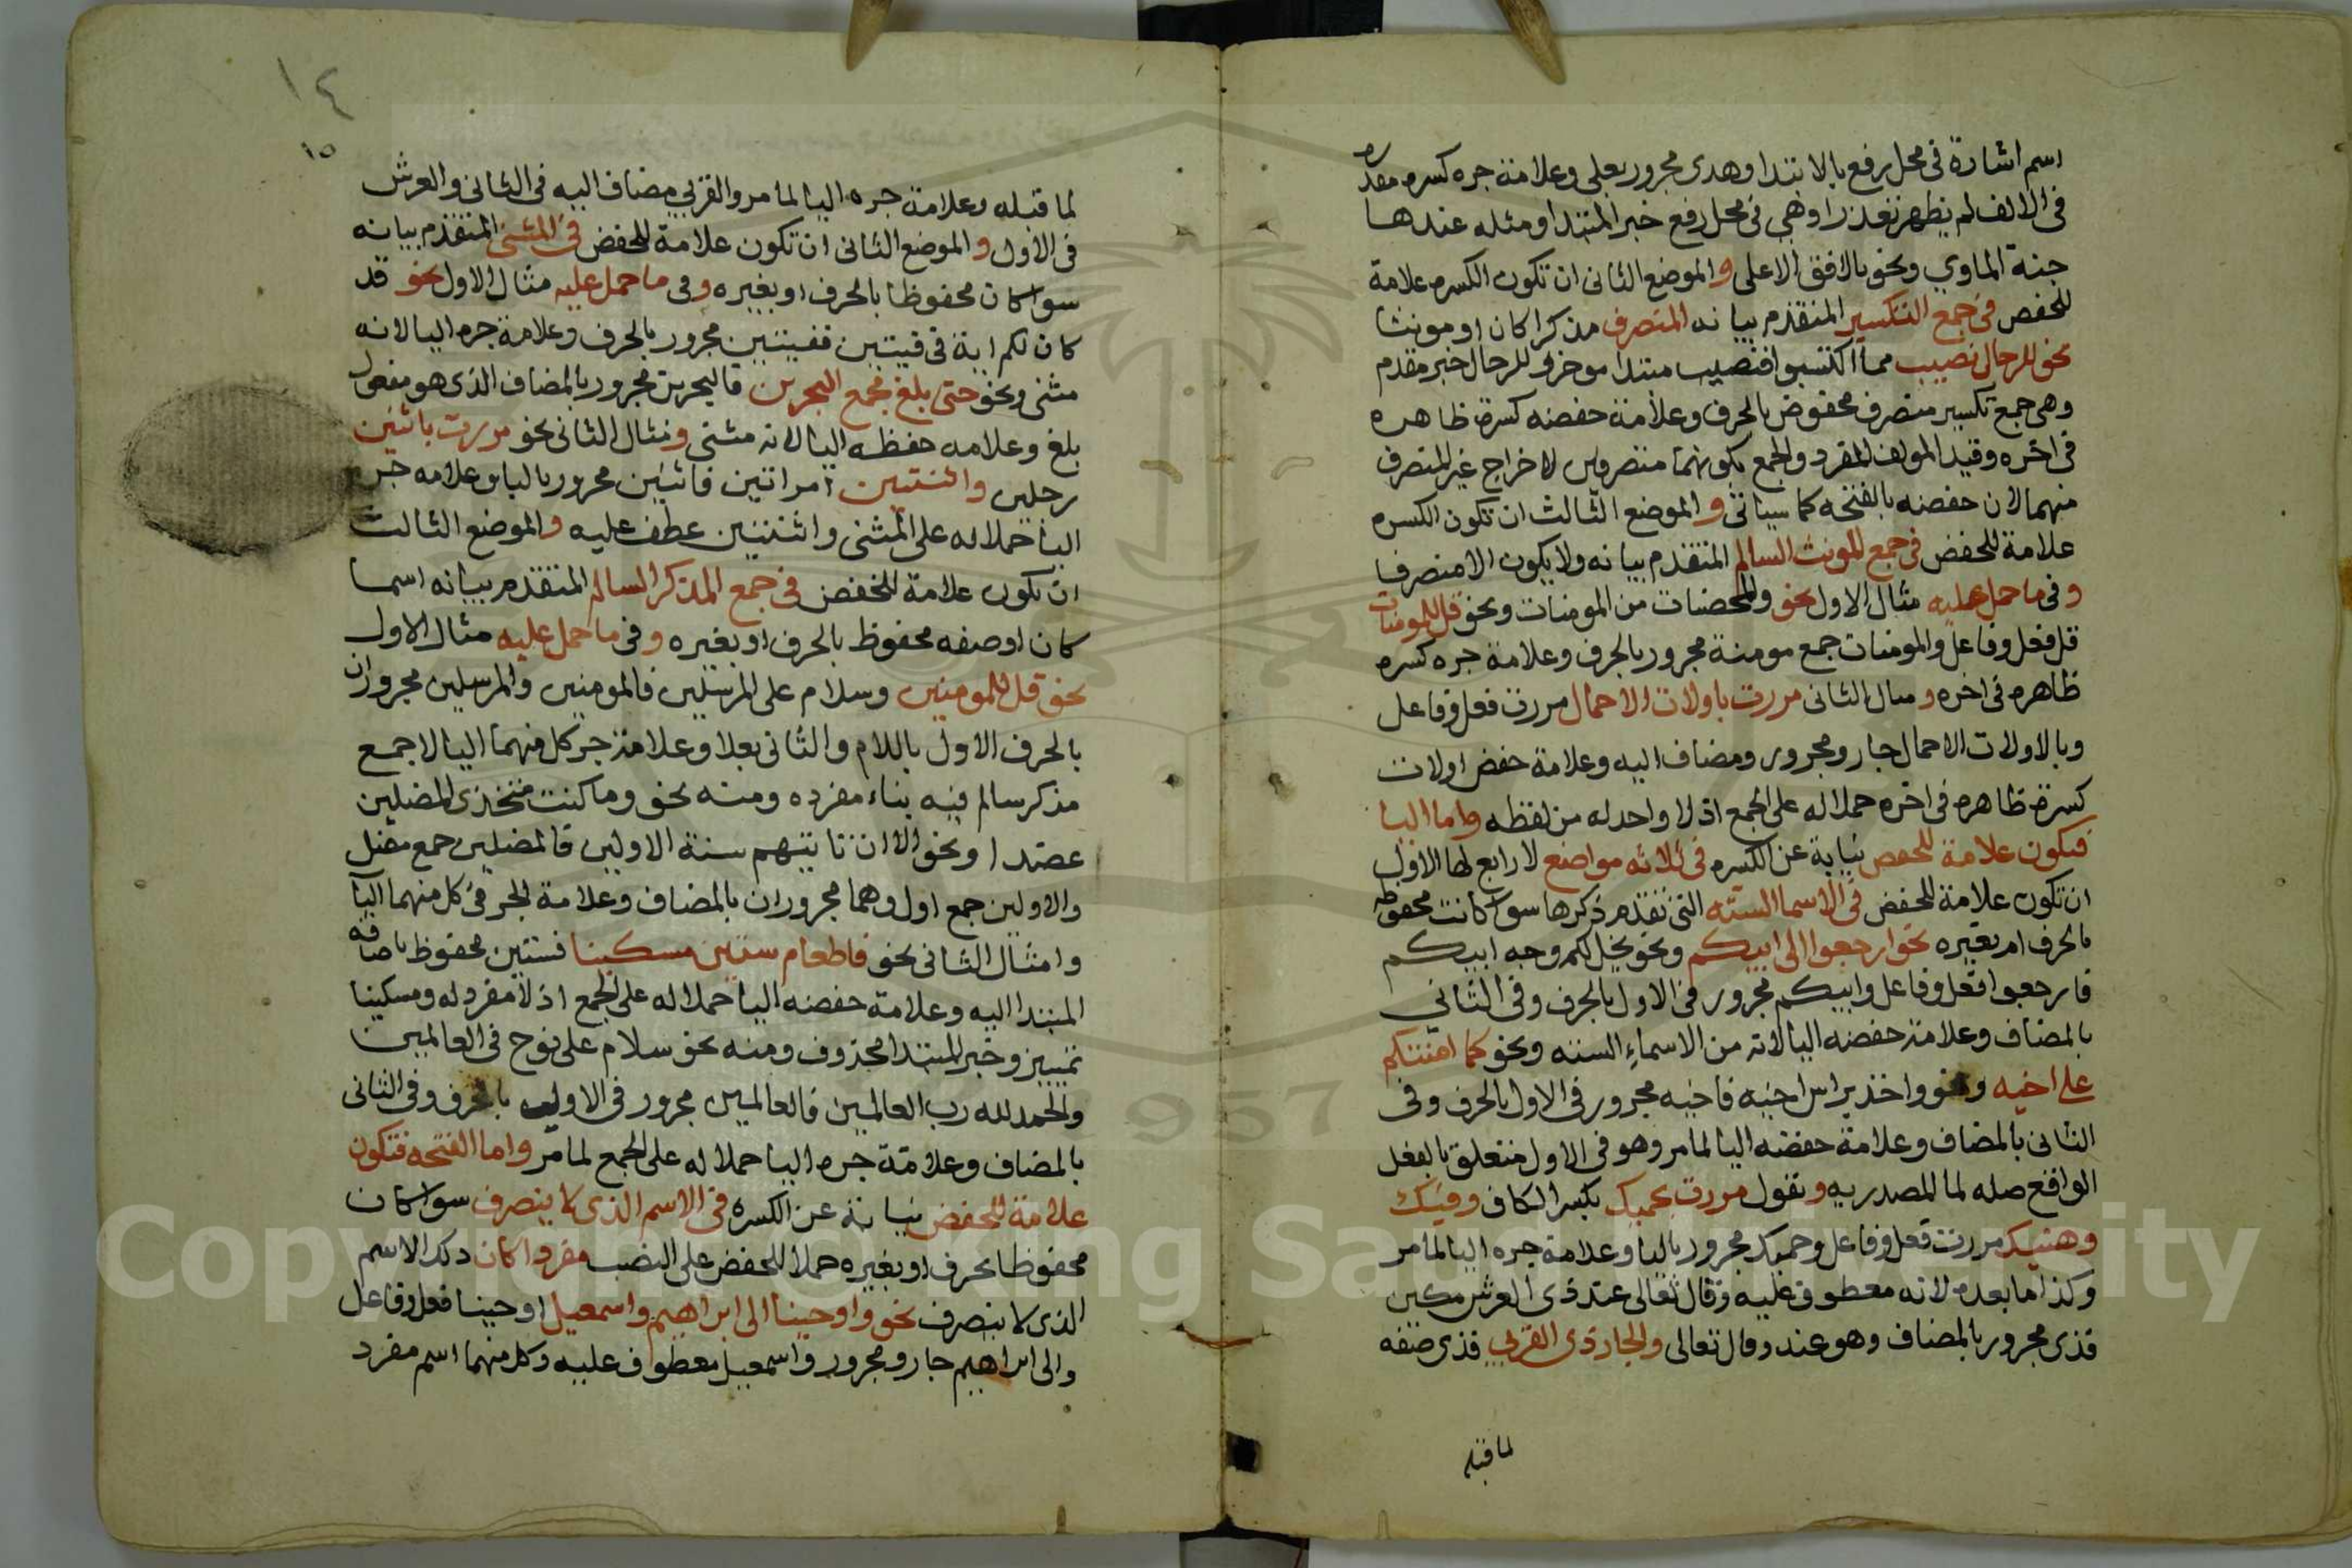 اسم اشارة فى محل رفع بالابتدا وهدى مجرور بعلى وعلامة جره كسره مقدره
فى الالف لم يظهر تعذرا وهي فى محل رفع خبر المبتدا ومثله عندها
جنة الماوي ونحو بالافق الاعلى و الموضع الثانى ان تكون الكسره علامة
للخفض فى جمع التكسير المتقدم بيانه المتصرف مذكرا كان او مونثا
نحو للرجال نصيب مما اكتسبوا فنصيب مبتدا موخر و للرجال خبر مقدم
وهى جمع تكسير متصرف مخفوض بالحرف وعلامة خفضه كسرة ظاهره
فى اخره وقيد المولف المفرد والجمع بكونهما منصرفين لاخراج غير المتصرف
منهما لان خفضه بالفتحه كما سياتى و الموضع الثالث ان تكون الكسره
علامة للخفض فى جمع المونث السالم المتقدم بيانه ولا يكون الا منصرفا
وفى ما حمل عليه مثال الاول نحو والمحصنات من المومنات ونحو قل للمومنات
قل فعل وفاعل والمومنات جمع مومنة مجرور بالحرف وعلامة جره كسره
ظاهره فى اخره و مثال الثانى مررت باولات الاحمال مررت فعل وفاعل
وبالاولات الاحمال جار ومجرور ومضاف اليه وعلامة خفض اولات
كسرة ظاهره فى اخره حملا له على الجمع اذ لا واحد له من لفظه واما اليا
فتكون علامة للخفض نيابة عن الكسره فى ثلاثه مواضع لا رابع لها الاول
ان تكون علامة للخفض فى الاسما الستة التى تقدم ذكرها سوا كانت مخفوظه
بالحرف ام بغيره نحو ارجعوا الى ابيكم ونحو يخل لكم وجه ابيكم
فارجعوا فعل وفاعل وابيكم مجرور فى الاول بالحرف وفى الثاني
بالمضاف وعلامة خفضه اليا لانه من الاسماء الستة ونحو كما امنتكم
على اخيه ونحو واخذ براس اخيه فاخيه مجرور فى الاول بالحرف وفى
الثانى بالمضاف وعلامة خفضه اليا لما مر وهو فى الاول متعلق بالفعل
الواقع صله لما المصدريه و تقول مررت بحميك بكسر الكاف وفيك
وهنيك مررت فعل وفاعل وحميك مجرور بالبا وعلامة جره اليا لما مر
وكذا ما بعده لانه معطوف عليه وقال تعالى عند ذى العرش مكين
فذى مجرور بالمضاف وهو عند وقال تعالى والجار ذى القربي فذى صفه
لما قبله
١٤
١٥
لما قبله وعلامة جره اليا لما مر والقربي مضاف اليه فى الثانى والعرش
فى الاول و الموضع الثانى ان تكون علامة للخفض فى المثنى المتقدم بيانه
سوا كان مخفوظا بالحرف او بغيره وفى ما حمل عليه مثال الاول نحو قد
كان لكم اية فى فيتين ففيتين مجرور بالحرف وعلامة جره اليا لانه
مثنى ونحو حتى بلغ مجمع البحرين فالبحرين مجرور بالمضاف الذى هو مفعول
بلغ وعلامه حفظه اليا لانه مثنى ومثال الثانى نحو مررت باثنين
رجلين واثنتين امراتين فاثنين مجرور بالبا وعلامه جره
اليا حملا له على المثنى واثنتين عطف عليه والموضع الثالث
ان تكون علامة للخفض فى جمع المذكر السالم المتقدم بيانه اسما
كان او صفه مخفوظ بالحرف او بغيره وفى ما حمل عليه مثال الاول
نحو قل للمومنين وسلام على المرسلين فالمومنين والمرسلين مجروران
بالحرف الاول باللام والثانى بعلا وعلامة جر كل منهما اليا لاجمع
مذكر سالم فيه بناء مفرده ومنه نحو وما كنت متخذى المضلين
عضدا ونحو الا ان تاتيهم سنة الاولين فالمضلين جمع مضل
والاولين جمع اول وهما مجروران بالمضاف وعلامة الجر فى كل منهما اليا
وامثال الثانى نحو فاطعام ستين مسكينا فستين مخفوظ باضافه
المبتدا اليه وعلامة خفضه اليا حملا له على الجمع اذ لا مفرد له ومسكينا
تمييز وخبر المبتدا محذوف ومنه نحو سلام على نوح فى العالمين
والحمد لله رب العالمين فالعالمين مجرور فى الاول بالحرف وفى الثانى
بالمضاف وعلامة جره اليا حملا له على الجمع لما مر واما الفتحه فتكون
علامة للخفض نيابة عن الكسره فى الاسم الذى لا ينصرف سوا كان
مخفوظا بحرف او بغيره حملا للخفض على النصب مفردا كان ذلك الاسم
الذى لا ينصرف نحو واوحينا الى ابراهيم واسمعيل اوحينا فعل وفاعل
والى ابراهيم جار ومجرور واسمعيل معطوف عليه وكل منهما اسم مفرد
Copyright © King Saud University
1957